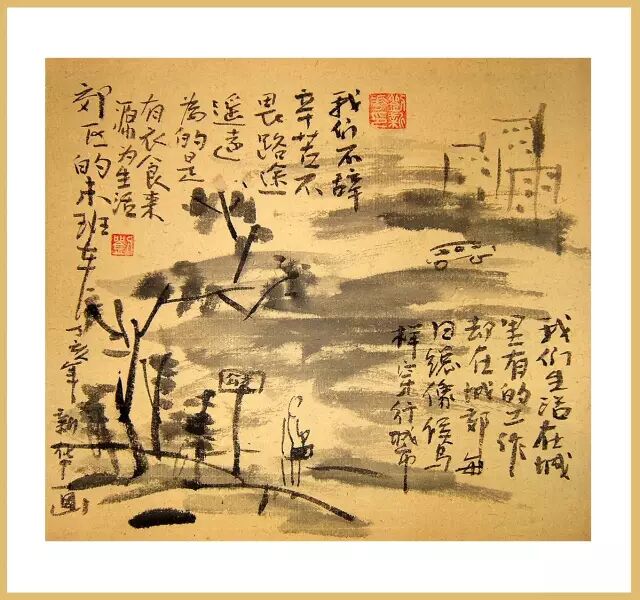 我们生活在城
里有的工作
却在城郊每
日總像候鸟
样 行城市
我们不辞
辛苦不
畏路途
遥远
為的是
有衣食来
源为生活
郊区的末班车
丁亥年
新华画